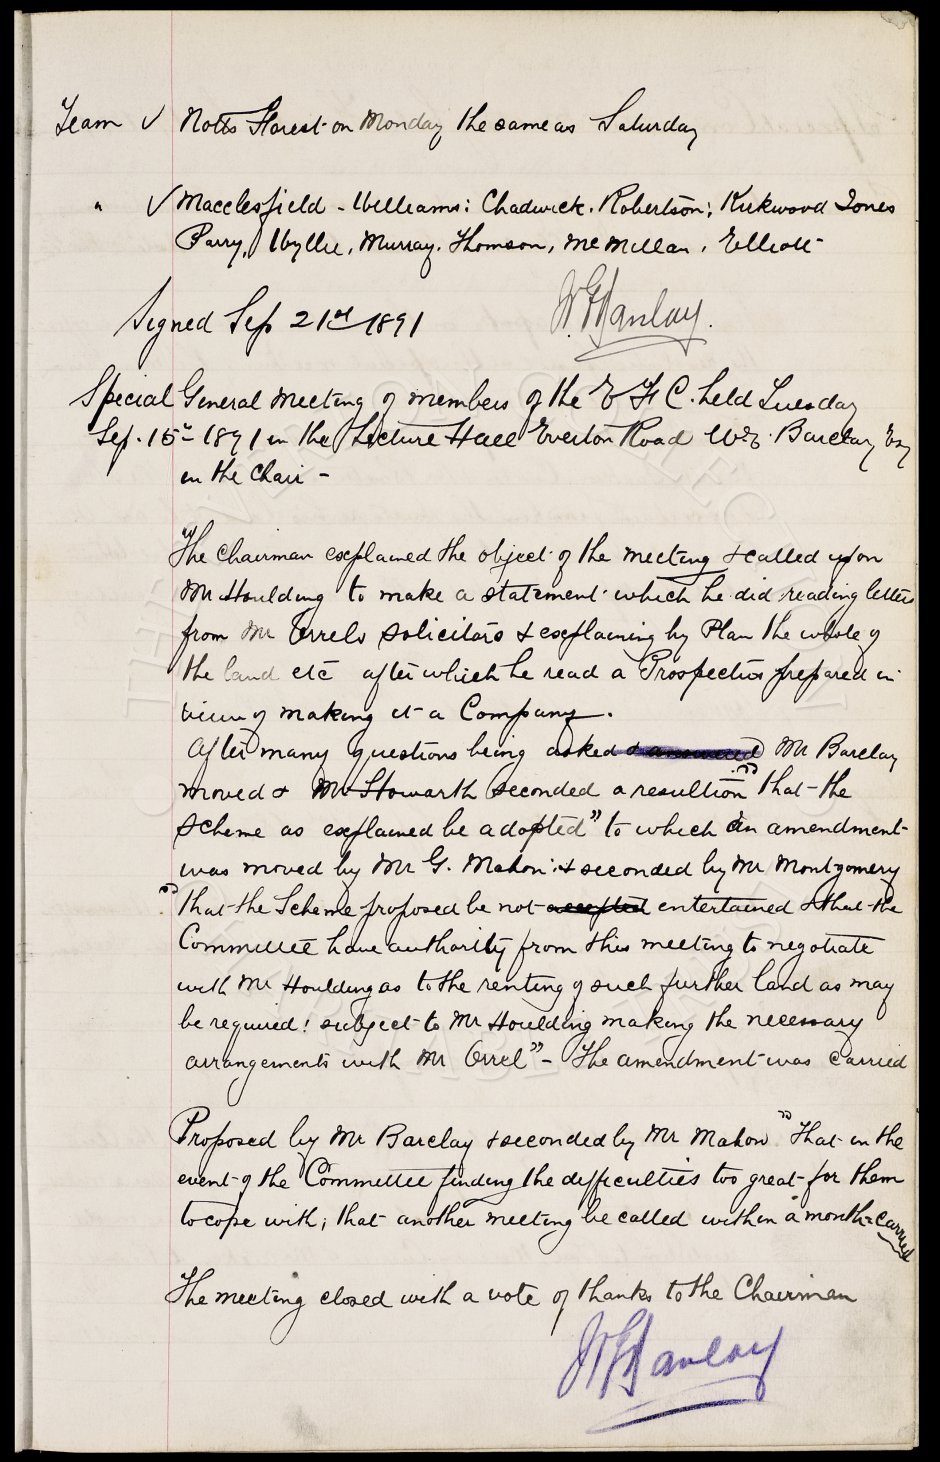 Team v Notts Forest on Monday the same as Saturday
" v Macclesfield - Williams: Chadwick. Robertson; Kirkwood Jones
Parry, Wyllie, Murray. Thomson, McMillan, Elliott
Signed Sep 21st 1891 W.F. Hanlay.
Special General Meeting of members of the E F C. held Tuesday
Sep. 15th 1891 in the Lecture Hall Everton Road W.E. Barclay Esq
in the Chair -
The Chairman explained the object of the meeting & called upon
Mr Houlding to make a statement which he did reading letters
from Mr Orrels solicitors & explaining by Plan the whole of
the land etc after which he read a Prospectus prepared in
view of making it a Company.
After many questions being asked & answered Mr Barclay
moved & Mr Howarth seconded a resultion "that the
scheme as explained be adopted" to which an amendment
was moved by Mr G. Mahon: & seconded by Mr Montgomery
"that the Scheme proposed be not accepted entertained & that the
Committee have authority from this meeting to negotiate
with Mr Houlding as to the renting of such further land as may
be required: subject to Mr Houlding making the necessary
arrangements with Mr Orrel" - The amendment was carried
Proposed by Mr Barclay & seconded by Mr Mahon "That in the
event of the Committee finding the difficulties too great for them
to cope with; that another meeting be called within a month - carried
The meeting closed with a vote of thanks to the Chairman